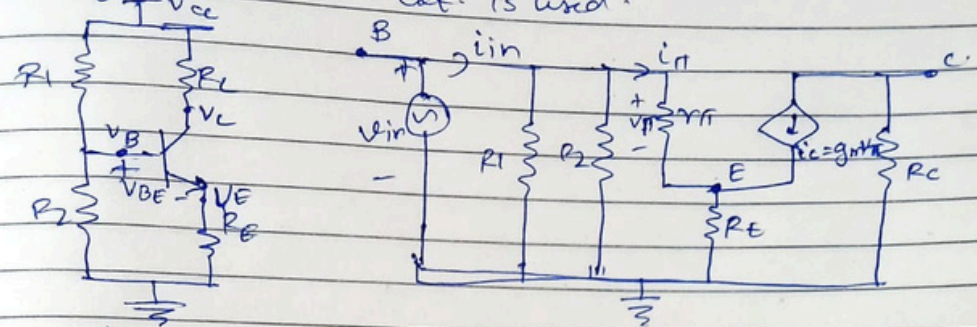 ckt. is used.
Vcc
R1
RL
VC
VB
+
VBE
-
VE
R2
RE
B
+
iin
vin
-
R1
R2
iπ
+
vπ
-
rπ
ic=gmvπ
E
RE
RC
C.